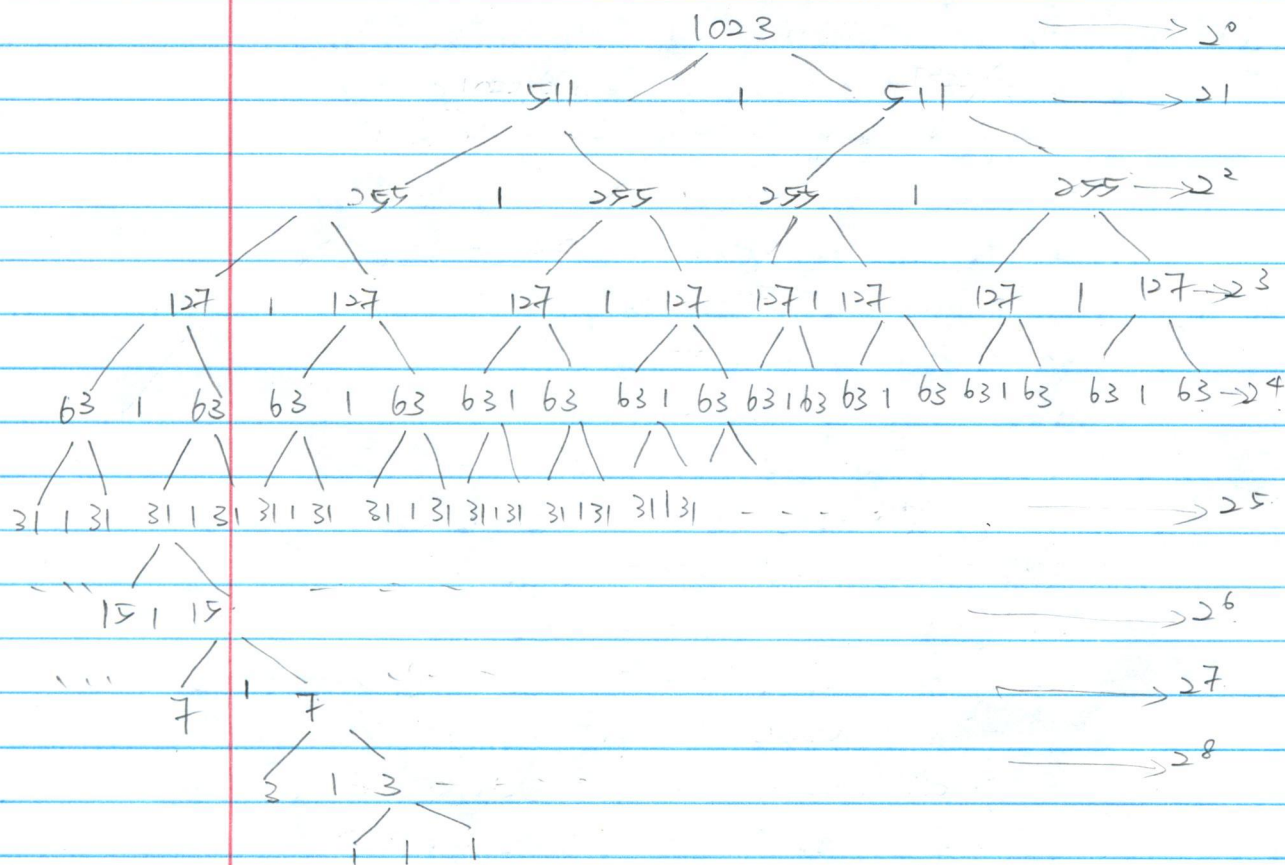 1023 → 2⁰
511 1 511 → 2¹
255 1 255 255 1 255 → 2²
127 1 127 127 1 127 127 1 127 127 1 127 → 2³
63 1 63 63 1 63 63 1 63 63 1 63 63 1 63 63 1 63 63 1 63 63 1 63 → 2⁴
31 1 31 31 1 31 31 1 31 31 1 31 31 1 31 31 1 31 31 1 31 - - - - → 2⁵
15 1 15 → 2⁶
... 7 1 7 → 2⁷
3 1 3 - - - - → 2⁸
1 1 1